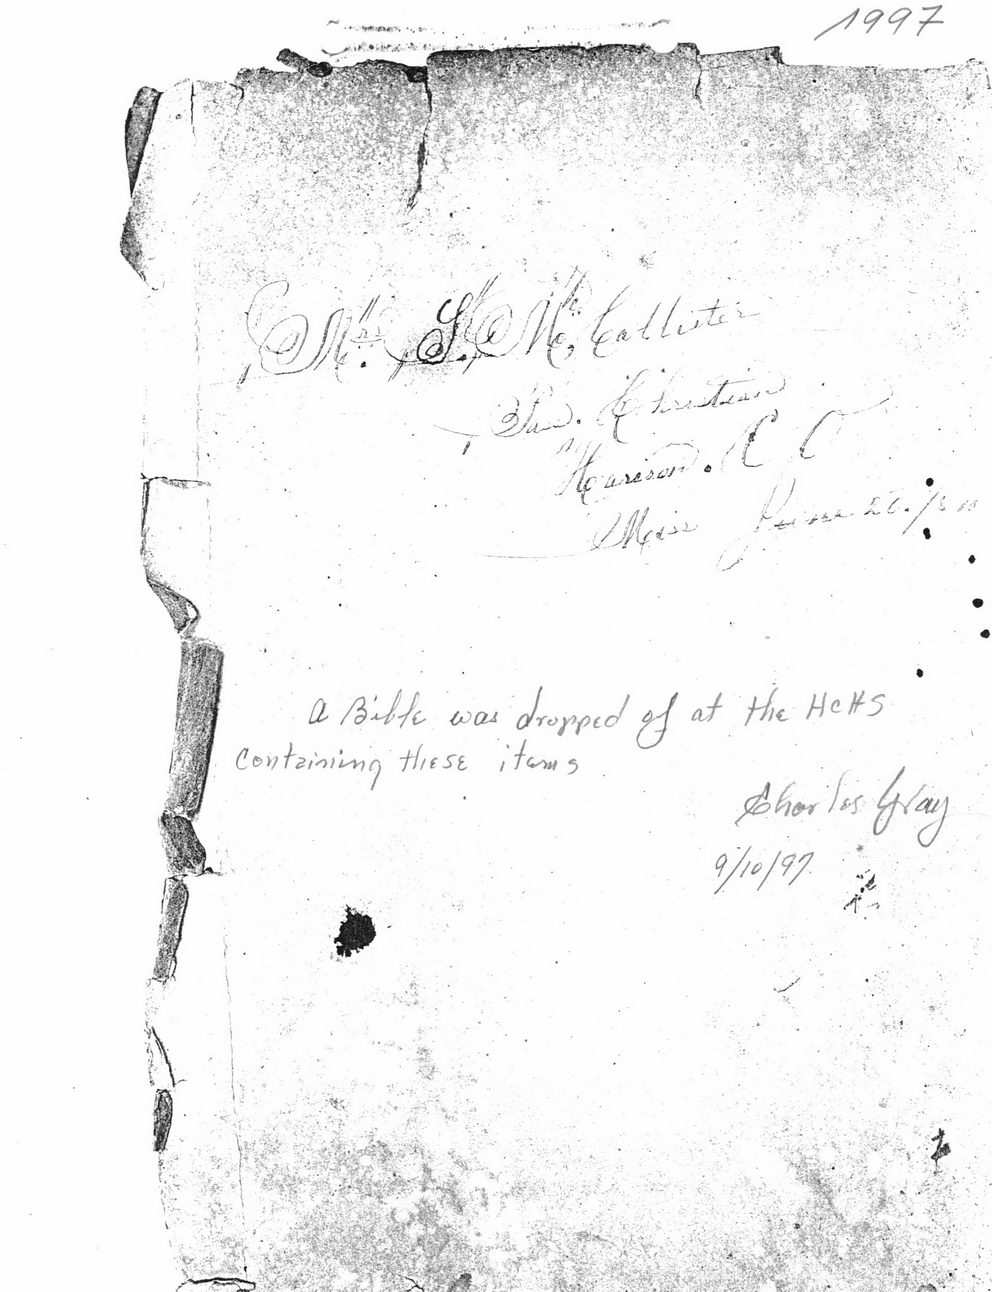 1997
Mrs. S. Mc. Callister
Pass. Christian
Harrison. C. O
Miss June 26. / 
A Bible was dropped of at the HCHS
containing these items
Charles Gray
9/10/97